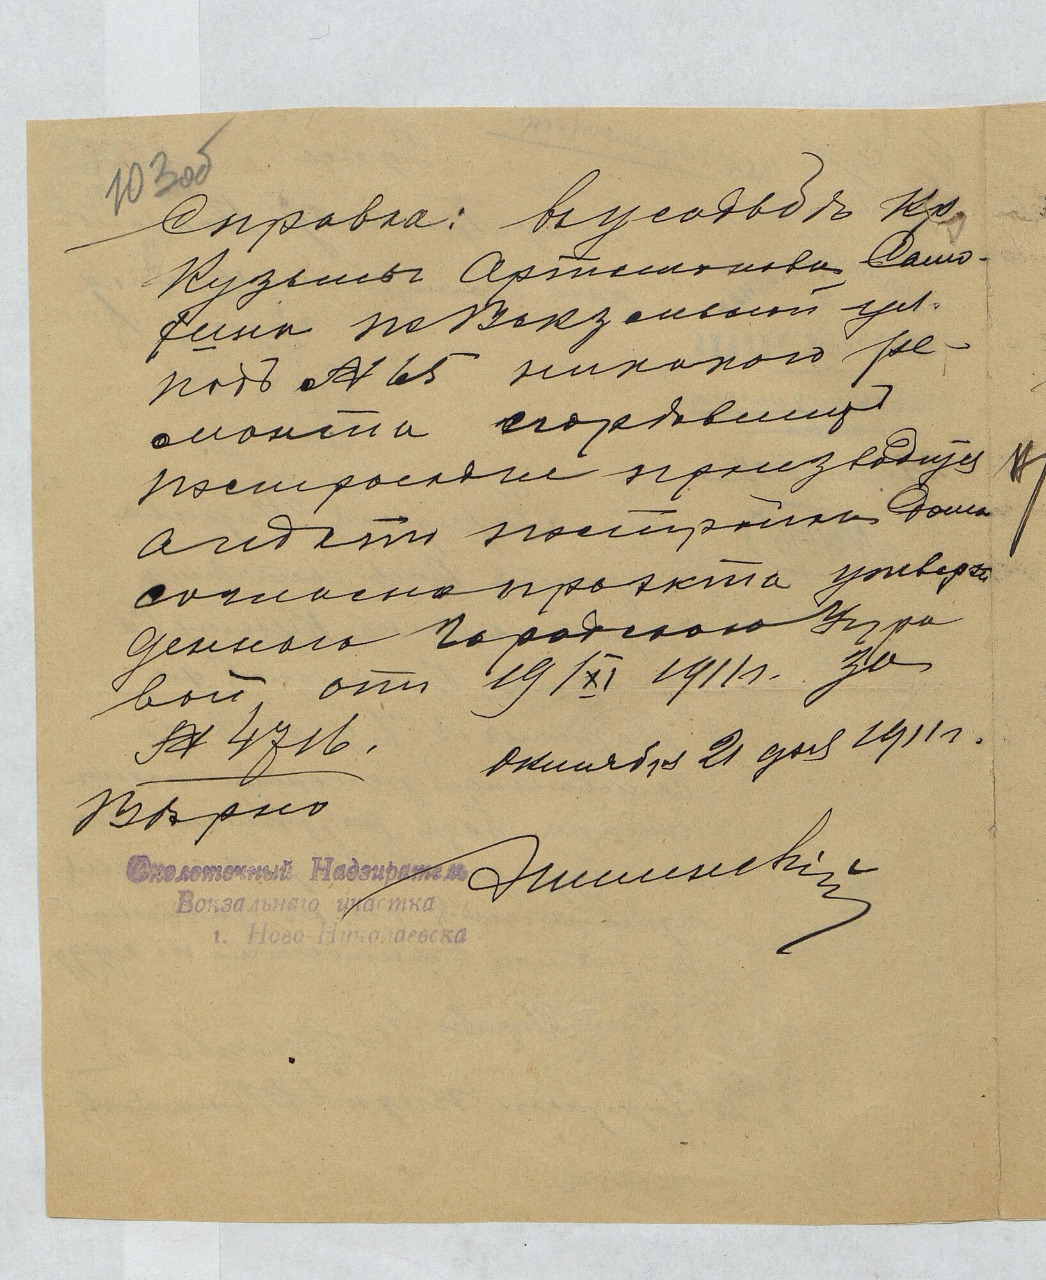 103 об
Справка: въ усадьбѣ кр.
Кузьмы Артамонова Само-
фина по Вокзальной ул.
подъ № 65 никакого ре-
монта сгорѣвшей
постройки производится
а идетъ постройка дома
согласно проэкта утверж
деннаго Городскою Упра
вой отъ 19/XI 1911 г. за
№ 4716.
октября 21 дня 1911 г.
Вѣрно
Околоточный Надзиратель
Вокзальнаго участка
г. Ново-Николаевска